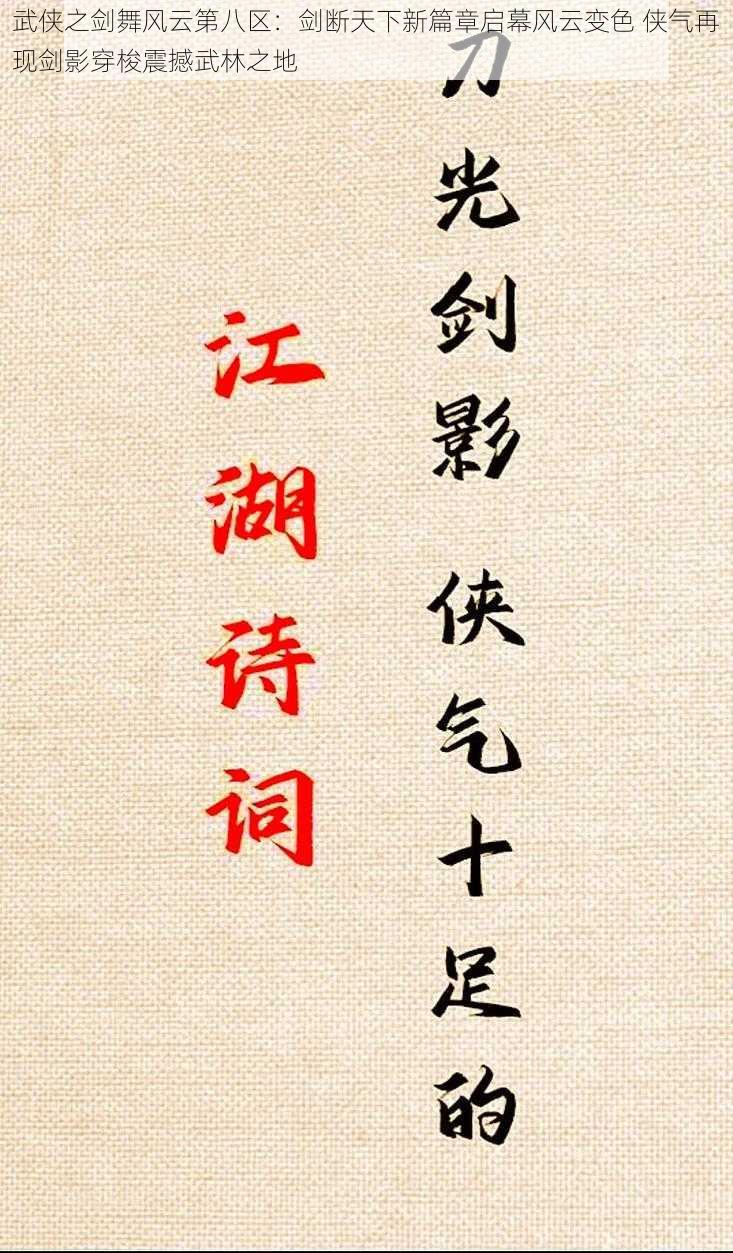 武侠之剑舞风云第八区：剑断天下新篇章启幕风云变色 侠气再
现剑影穿梭震撼武林之地
刀光剑影 侠气十足的
江湖诗词